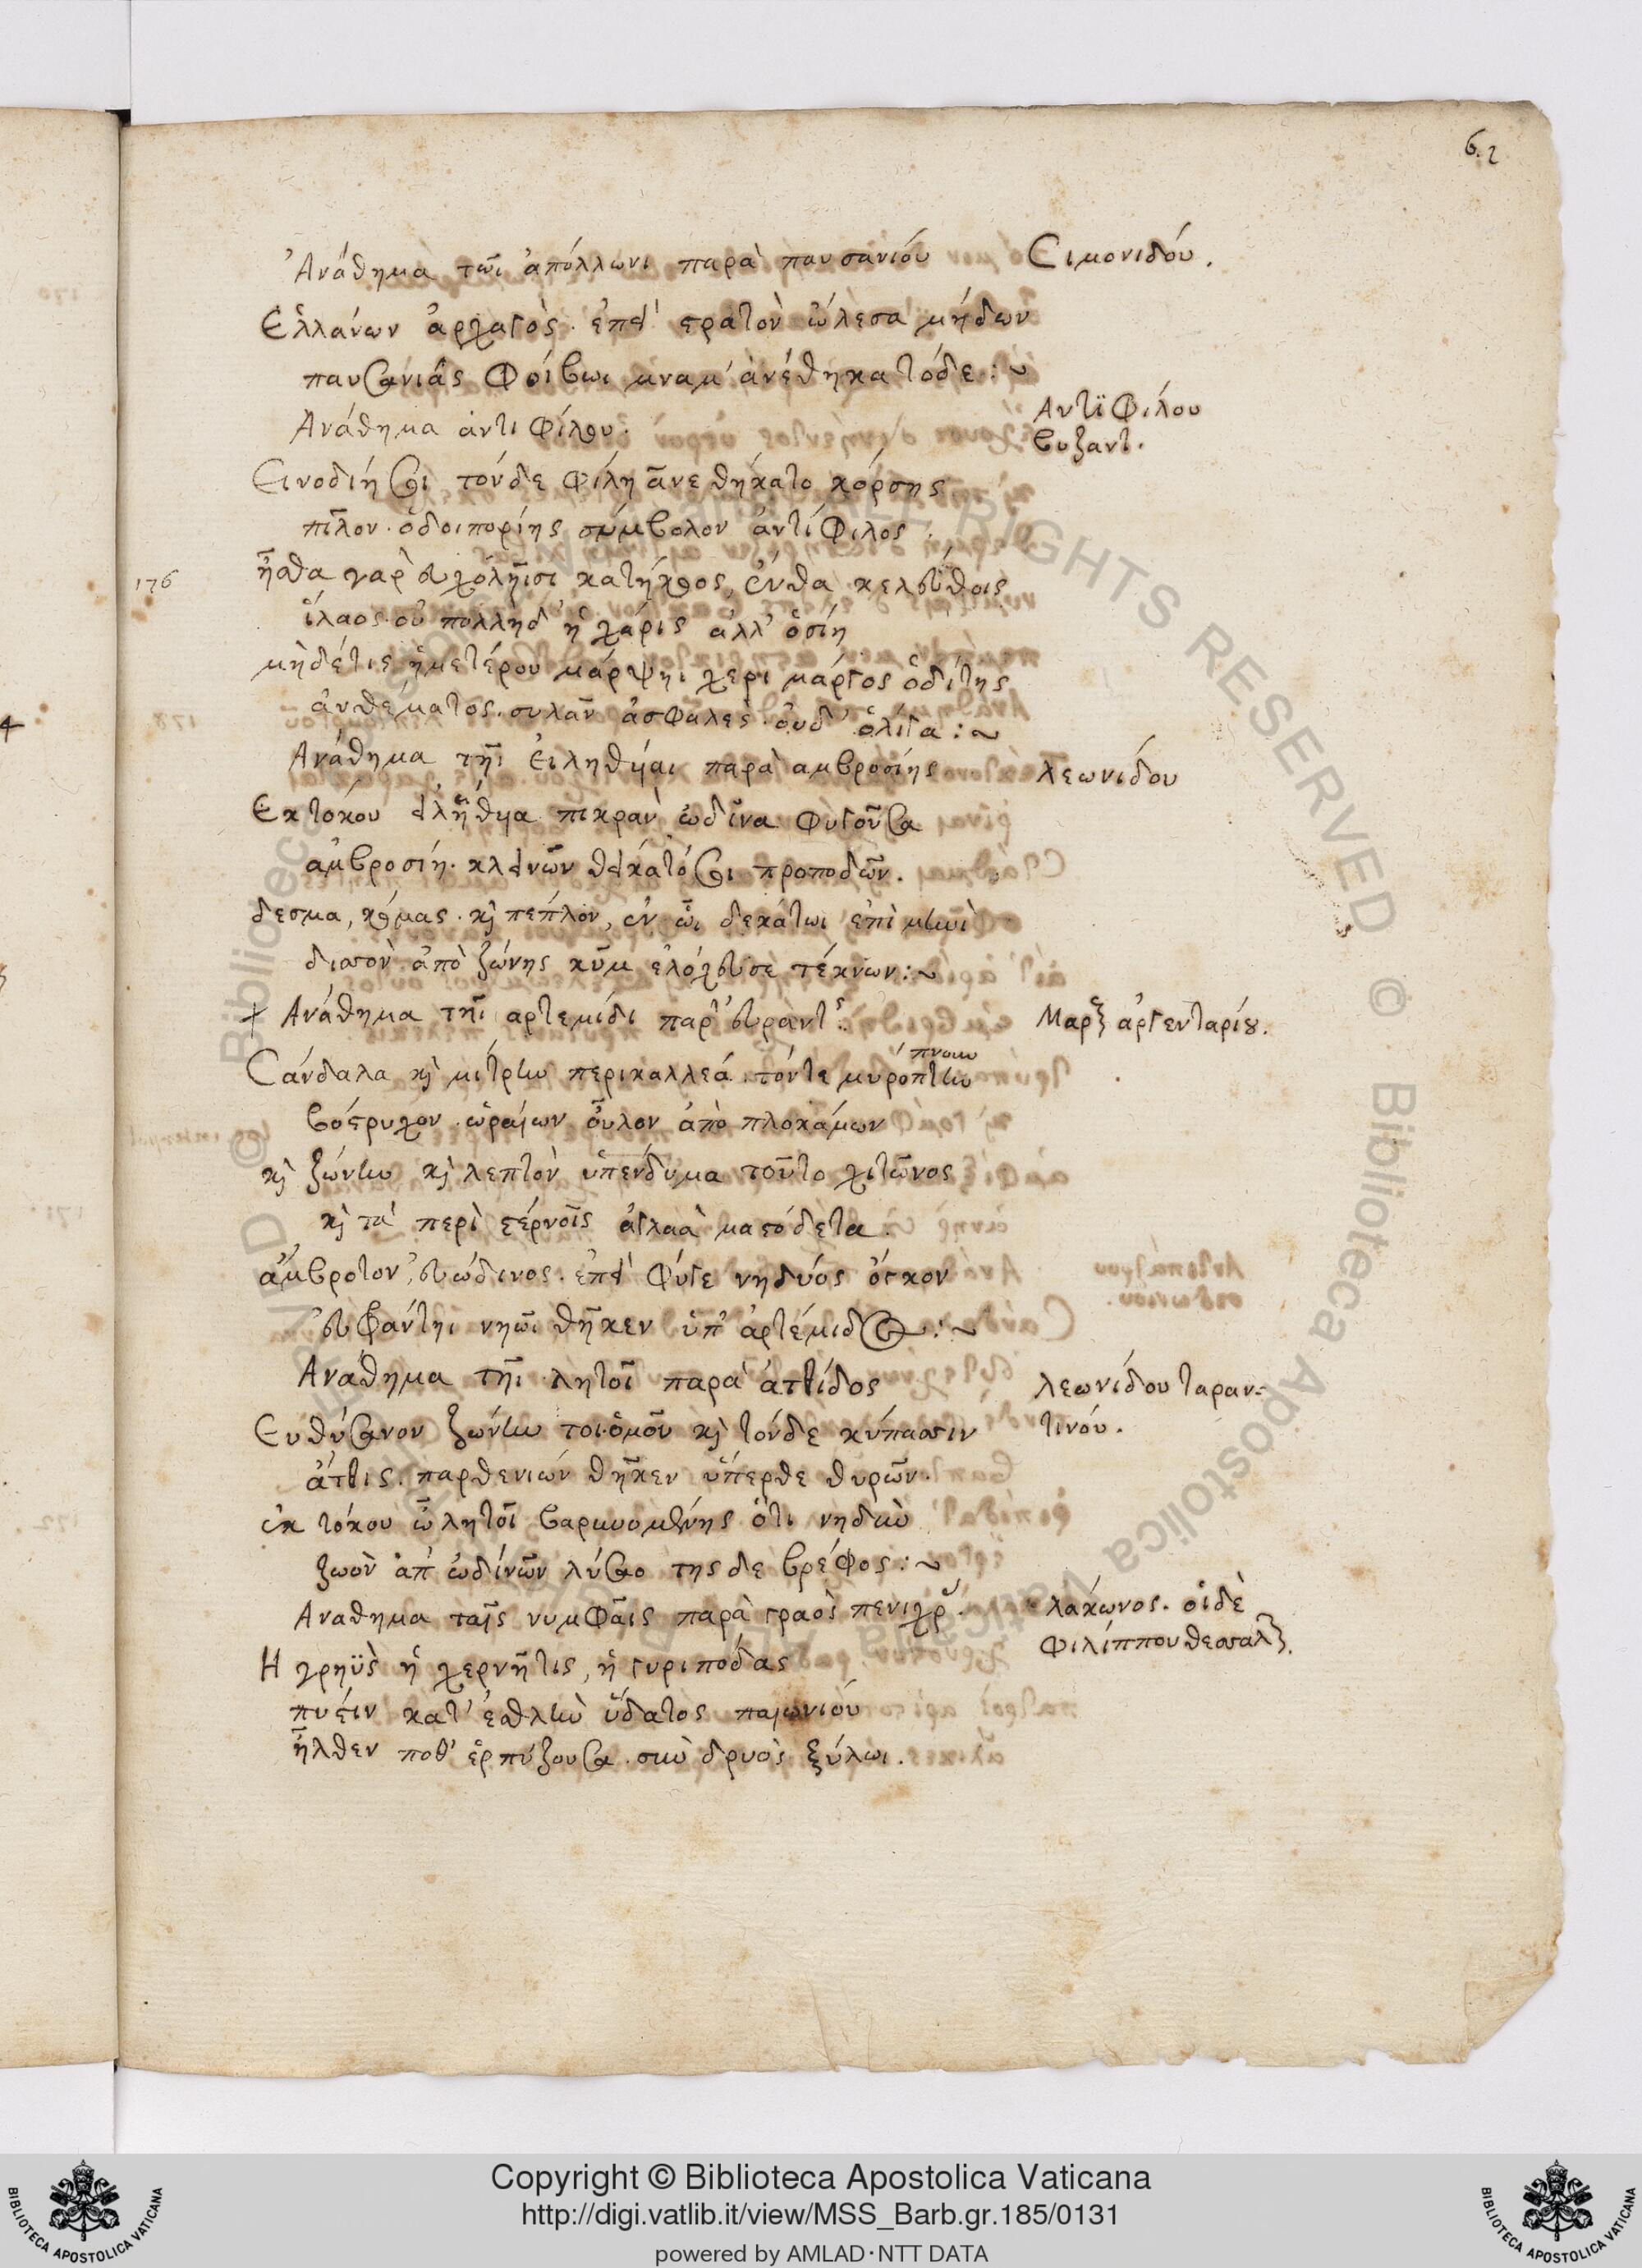 62
Ἀνάθημα τῶι ἀπόλλωνι παρὰ παυσανίου Σιμονιδού.
Ελλάνων ἀρχαγὸς. ἐπεὶ στρατὸν ὤλεσα μήδων
παυσανιὰς Φοίβωι μναμ' ἀνέθηκα τόδε:~
Ανάθημα ἀντιφίλου. Αντϊφίλου
βυζαντ.
Εινοδιή σοι τόνδε φίλη ἀνεθήκατο κόρσης
πῖλον. ὁδοιπορίης σύμβολον ἀντίφιλος.
176 ἦσθα γαρ εὐχόλῃσι κατήκοος, ἔνθα κελεύθοις
ἵλαος. οὐ πολλὴ δ' ἡ χάρις ἀλλ' ὁσίη
μὴ δέ τις ἡμετέρου μάρψηι χερι μάργος ὁδίτης
ἀνθέματος. συλᾶν ἀσφαλὲς. ουδ' ὀλίγα:~
Ανάθημα τῆι ειληθυίαι παρὰ αμβροσίης λεωνίδου
Εκ τόκου εἰλήθυα πικρὰν ὠδῖνα φυγοῦσα
αμβροσίη. κλεινῶν θείκατό σοι προποδῶν.
δεσμα, κόμας. κὶ πεπλον, ἐν ὧι δεκάτωι ἐπὶ μηνὶ
δισσὸν ἀπὸ ζώνης κῦμ' ελόχευσε τέκνων:~
+ Ανάθημα τῆι αρτεμίδι παρ' εὐφράντ. Μαρκ ἀργενταρίου.
πνουν
Σάνδαλα κὶ μίτρην περικαλλεά. τόν τε μυρόπτην
βόστρυχον ὡραίων οὖλον ἀπὸ πλοκάμων
κὶ ζώνην κὶ λεπτὸν ὑπένδυμα τοῦτο χιτῶνος
κὶ τα περὶ στέρνοις ἀγλαὰ μαστόδετα.
ἀμβροτον, εὐώδινος. ἐπεὶ φύγε νηδύος ὄγκον
εὐφάντηι νηῶι θῆκεν ὑπ' ἀρτέμιδος:~
Ανάθημα τῆι λητοῖ παρὰ ἀτθίδος λεωνίδου ταραν-
τινού.
Ευθύσανον ζώνην τοι ὁμοῦ κὶ τόνδε κύπασσιν
ἀτθις. παρθενιών θῆκεν ὕπερθε θυρῶν.
ἐκ τόκου ὦ λητοῖ βαρυνομένης ὅτι νηδὺν
ζωὸν ἀπ' ὠδίνῶν λύσαο τησδε βρέφος:~
Αναθημα ταῖς νυμφαις παρὰ γραὸς πενιχρ. λάκωνος. οἱδὲ
φιλίππου θεσσαλ.
Η γρηϋς ἡ χερνῆτις, ἡ γυριπόδας
πυείν κατ' ἐσθλὴν ὕδατος παιωνιού
ἦλθεν ποθ' ἑρπύζουσα. σὺν δρυὸς ξύλωι.
Copyright © Biblioteca Apostolica Vaticana
http://digi.vatlib.it/view/MSS_Barb.gr.185/0131
powered by AMLAD·NTT DATA